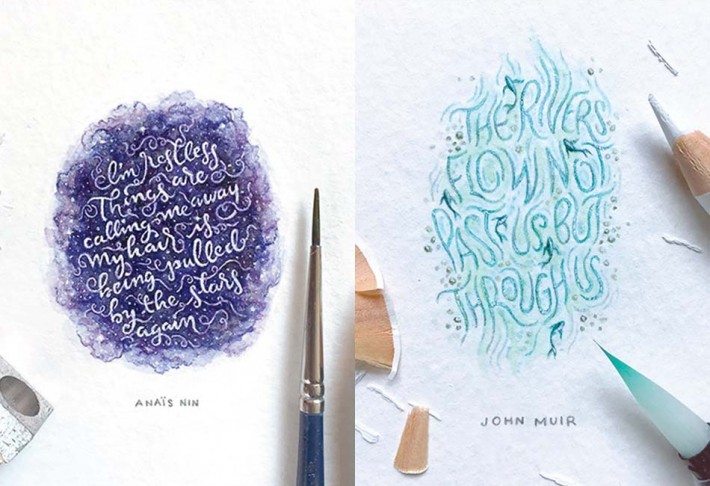 I'm restless
Things are
calling me away
My hair is
being pulled
by the stars
again
ANAÏS NIN
THE RIVERS
FLOW NOT
PAST US BUT
THROUGH US
JOHN MUIR